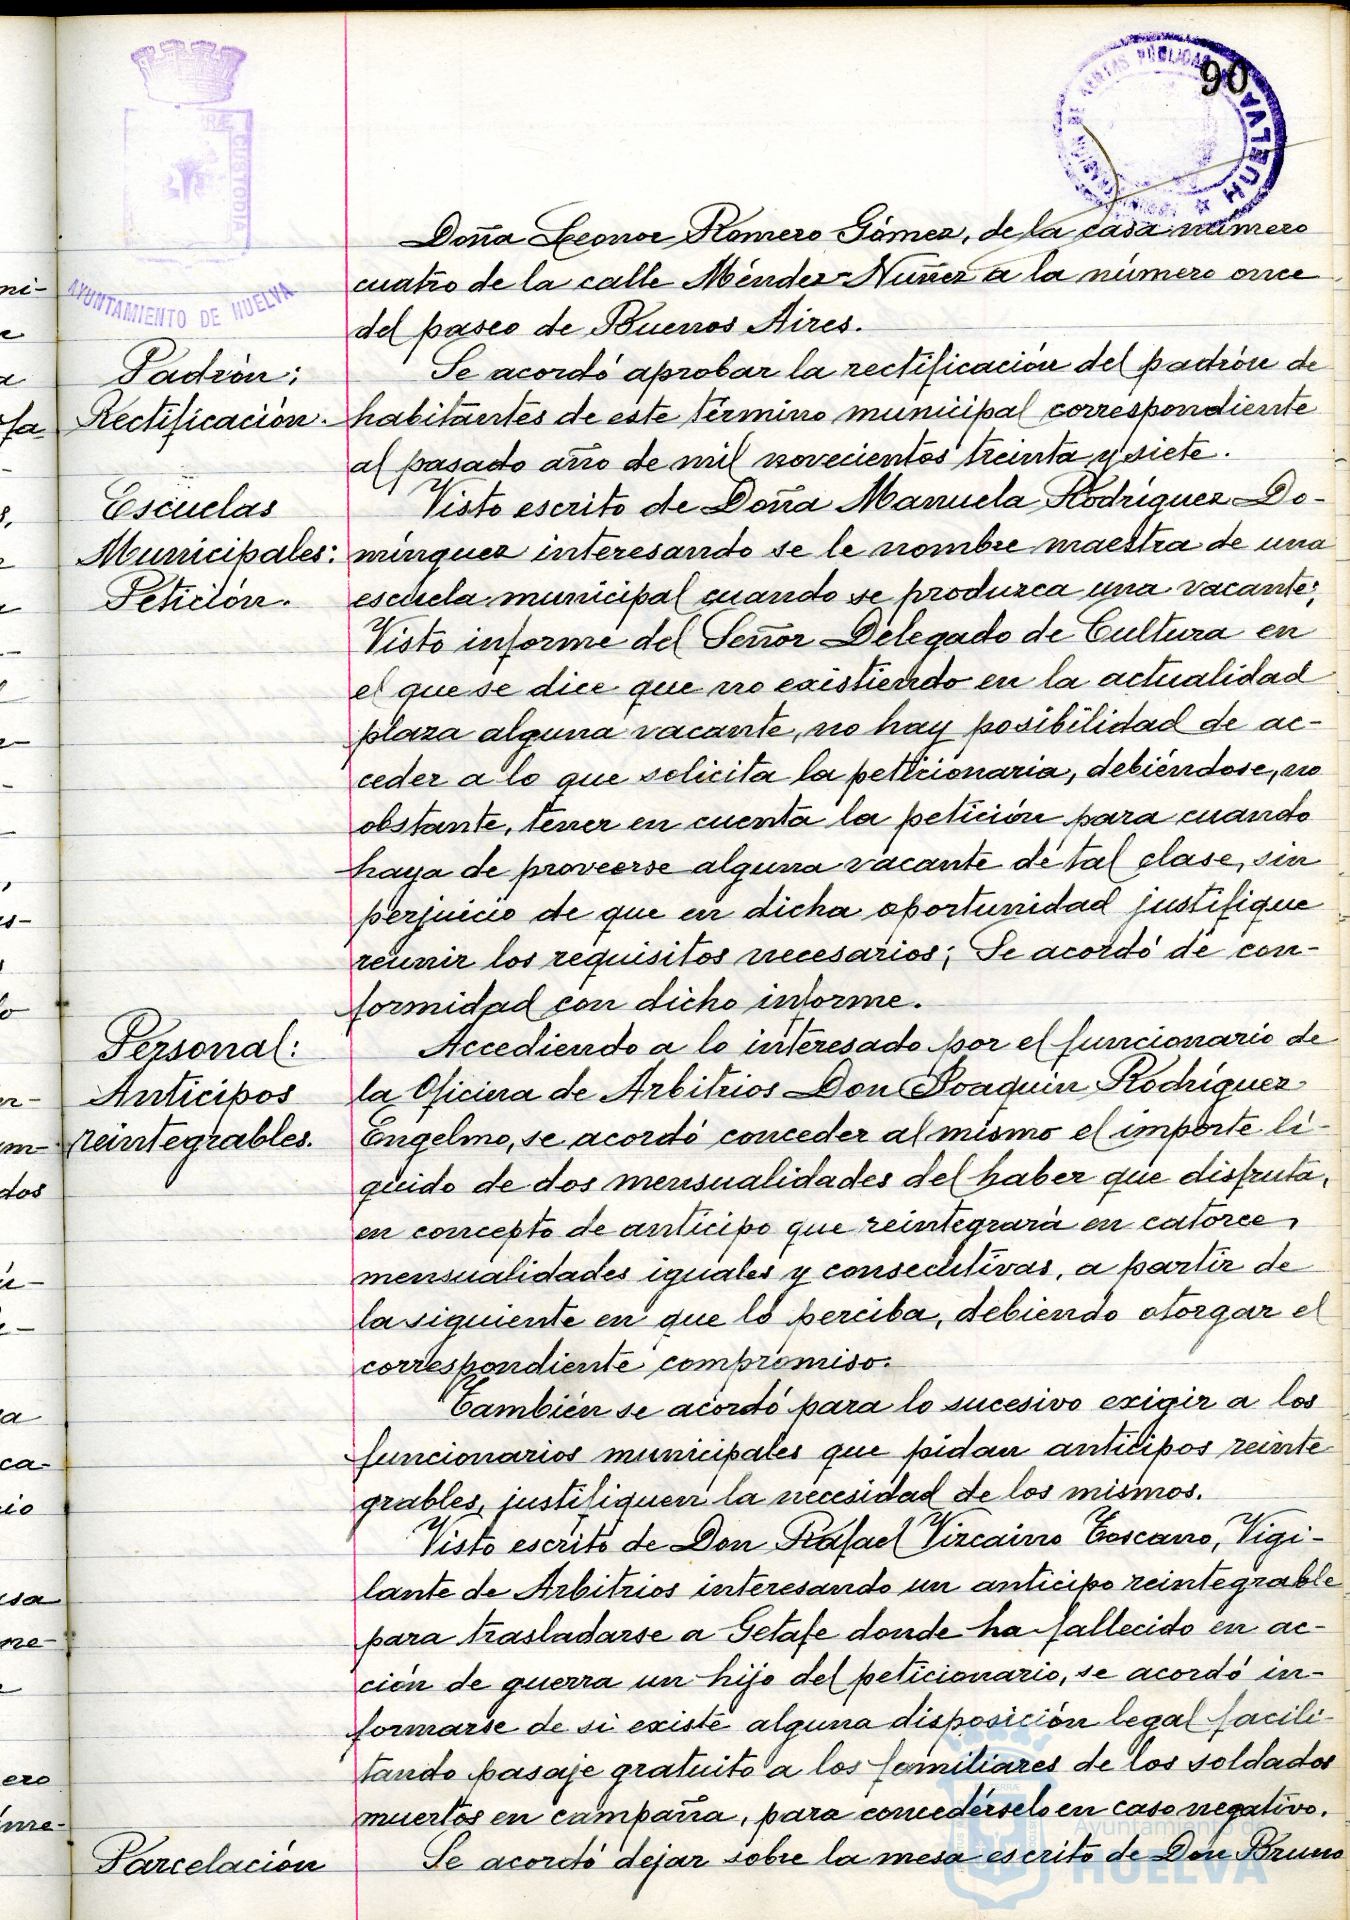 90
HUELVA
CUSTODIA
AYUNTAMIENTO DE HUELVA
Doña Leonor Romero Gómez, de la casa número
cuatro de la calle Méndez-Nuñez a la número once
del paseo de Buenos Aires.
Padrón:
Rectificación.
Se acordó aprobar la rectificación del padrón de
habitantes de este término municipal correspondiente
al pasado año de mil novecientos treinta y siete.
Escuelas
Municipales:
Petición.
Visto escrito de Doña Manuela Rodríguez Do-
mínguez interesando se le nombre maestra de una
escuela municipal cuando se produzca una vacante;
Visto informe del Señor Delegado de Cultura en
el que se dice que no existiendo en la actualidad
plaza alguna vacante, no hay posibilidad de ac-
ceder a lo que solicita la peticionaria, debiéndose, no
obstante, tener en cuenta la petición para cuando
haya de proveerse alguna vacante de tal clase, sin
perjuicio de que en dicha oportunidad justifique
reunir los requisitos necesarios; Se acordó de con-
formidad con dicho informe.
Personal:
Anticipos
reintegrables.
Accediendo a lo interesado por el funcionario de
la Oficina de Arbitrios Don Joaquín Rodríguez
Engelmo, se acordó conceder al mismo el importe lí-
quido de dos mensualidades del haber que disfruta,
en concepto de anticipo que reintegrará en catorce
mensualidades iguales y consecutivas, a partir de
la siguiente en que lo perciba, debiendo otorgar el
correspondiente compromiso.
También se acordó para lo sucesivo exigir a los
funcionarios municipales que pidan anticipos reinte
grables, justifiquen la necesidad de los mismos.
Visto escrito de Don Rafael Vizcaino Toscano, Vigi-
lante de Arbitrios interesando un anticipo reintegrable
para trasladarse a Getafe donde ha fallecido en ac-
ción de guerra un hijo del peticionario, se acordó in-
formarse de si existe alguna disposición legal facili-
tando pasaje gratuito a los familiares de los soldados
muertos en campaña, para concedérselo en caso negativo.
Parcelación
Se acordó dejar sobre la mesa escrito de Don Bruno
Ayuntamiento de
HUELVA